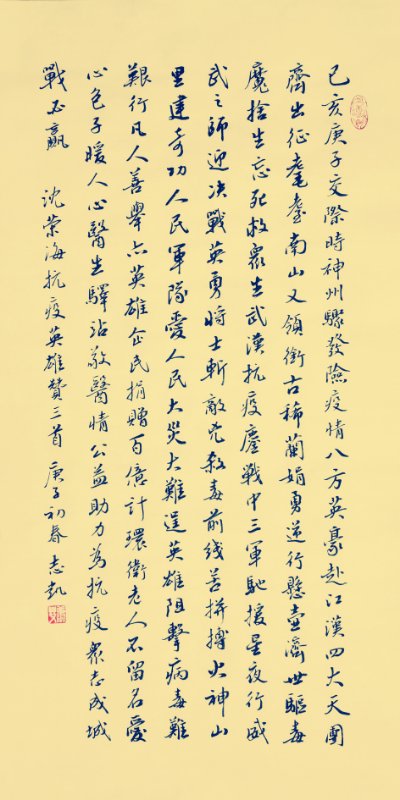 己亥庚子交際時神州驟發險疫情八方英豪赴江漢四大天團
齊出征耄耋南山又領銜古稀蘭娟勇逆行懸壺濟世驅毒
魔捨生忘死救眾生武漢抗疫鏖戰中三軍馳援星夜行威
武之師迎决戰英勇將士斬敵兇殺毒前线苦拼搏火神山
里建奇功人民軍隊愛人民大災大難逞英雄阻擊病毒難
艱行凡人善舉亦英雄企民捐贈百億計環衛老人不留名愛
心包子暖人心醫生驛站敬醫情公益助力為抗疫眾志成城
戰必贏 沈榮海抗疫英雄贊三首 庚子初春志凱